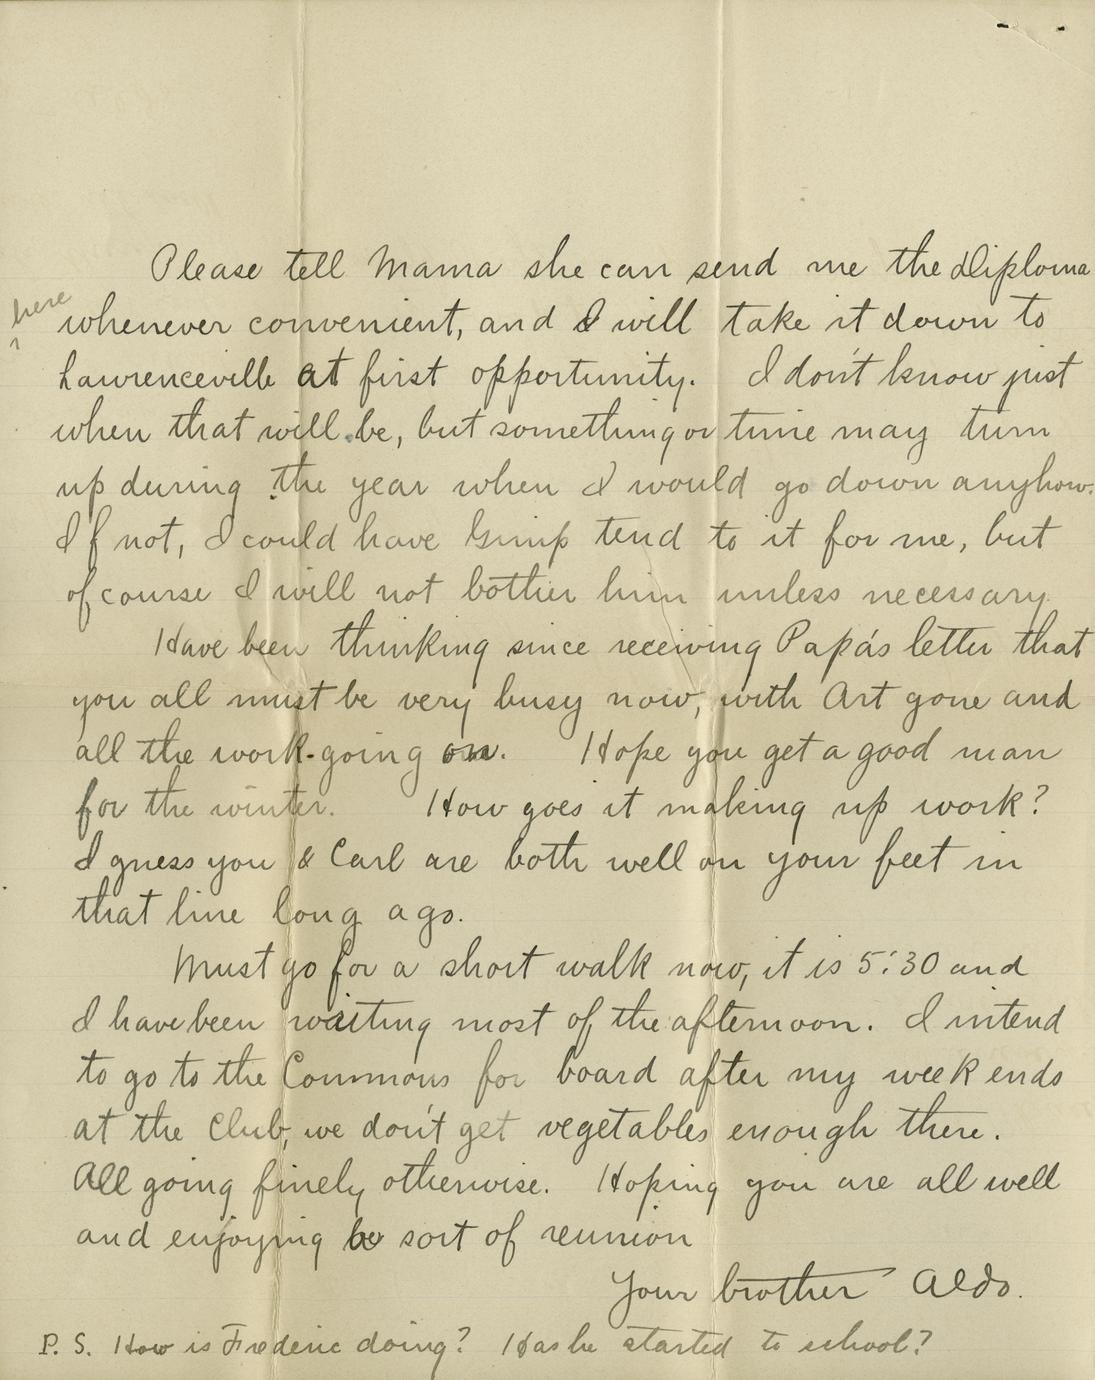 Please tell Mama she can send me the Diploma
here
whenever convenient, and I will take it down to
Lawrenceville at first opportunity. I don't know just
when that will be, but something or time may turn
up during the year when I would go down anyhow.
If not, I could have Gimp tend to it for me, but
of course I will not bother him unless necessary.
Have been thinking since receiving Papa's letter that
you all must be very busy now, with Art gone and
all the work going on. Hope you get a good man
for the winter. How goes it making up work?
I guess you & Carl are both well on your feet in
that line long ago.
Must go for a short walk now, it is 5:30 and
I have been waiting most of the afternoon. I intend
to go to the Commons for board after my week ends
at the Club, we don't get vegetables enough there.
All going finely otherwise. Hoping you are all well
and enjoying sort of reunion
Your brother Aldo.
P. S. How is Frederic doing? Has he started to school?